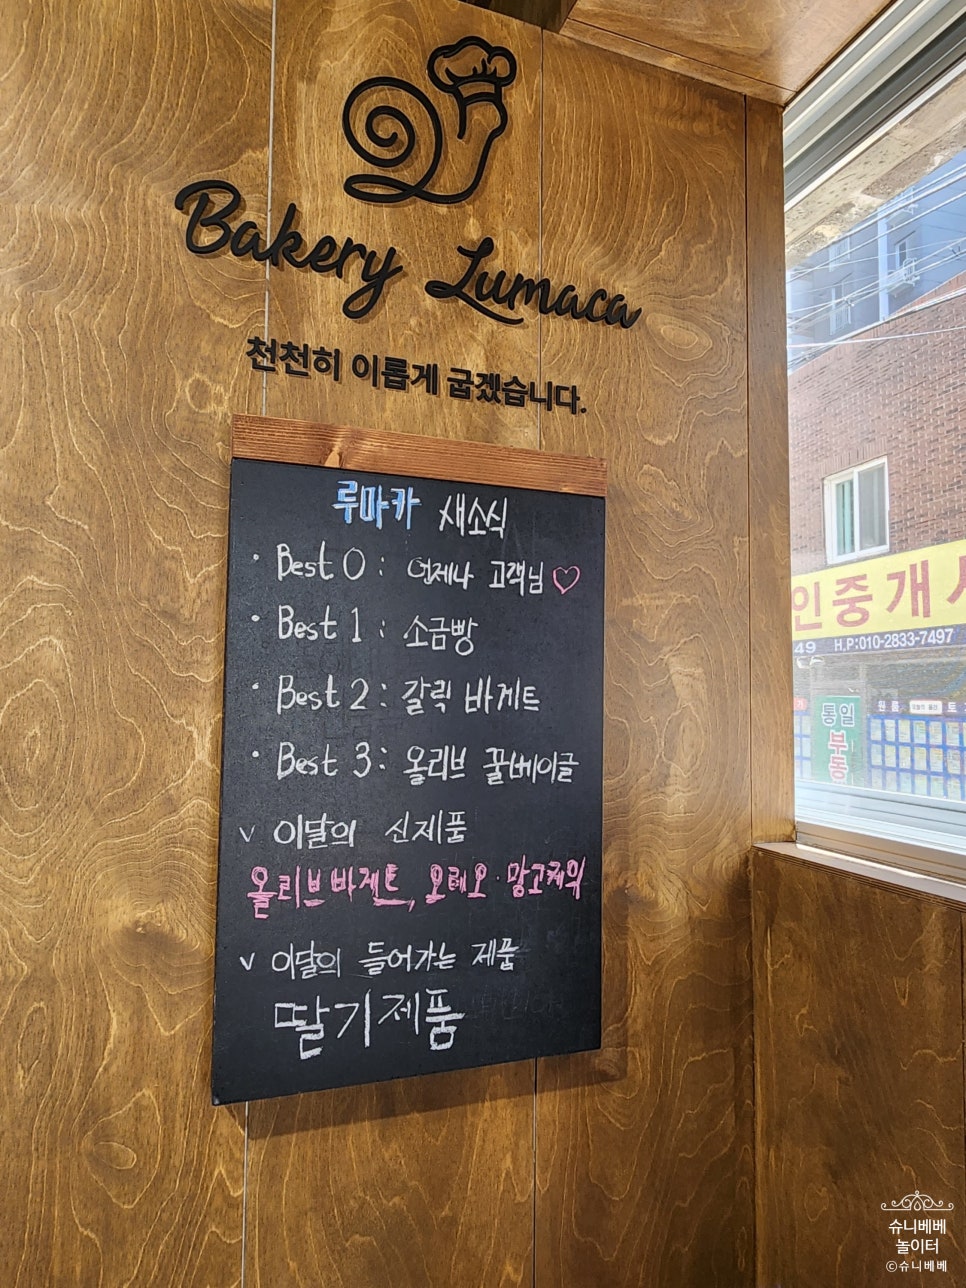 Bakery Lumaca
천천히 이롭게 굽겠습니다.
루마카 새소식
· Best 0 : 언제나 고객님♡
· Best 1 : 소금빵
· Best 2 : 갈릭 바게트
· Best 3 : 올리브 꿀베이글
v 이달의 신제품
올리브바게트, 오레오·망고퀴위
v 이달의 들어가는 제품
딸기제품
인중개사
49 H.P:010-2833-7497
통일
부동
슈니베베
놀이터
©슈니베베